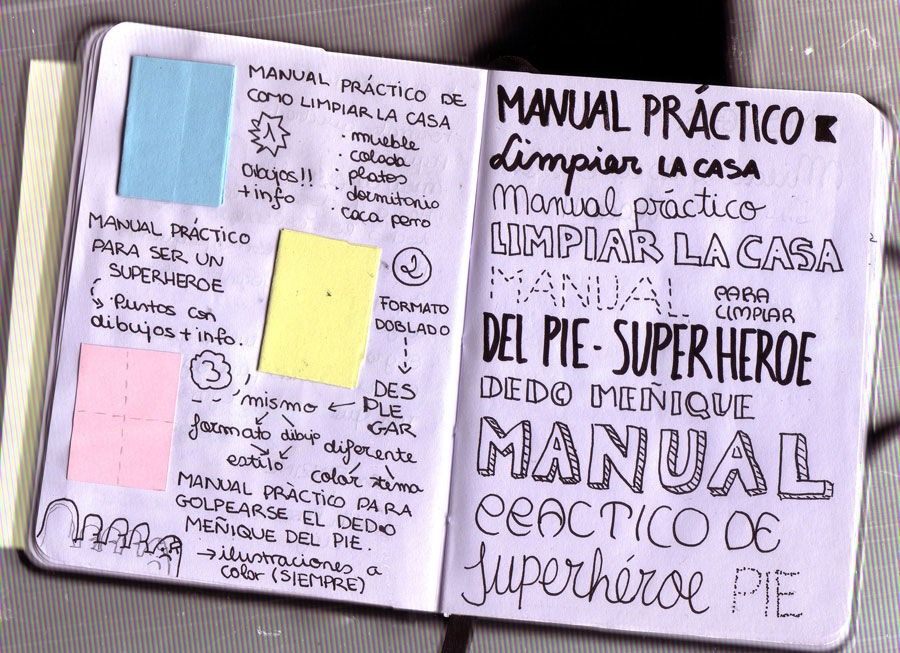 MANUAL PRÁCTICO DE
COMO LIMPIAR LA CASA
1
Dibujos!!
+ info
· mueble
· colada
· platos
· dormitorio
· caca perro
MANUAL PRÁCTICO
PARA SER UN
SUPERHEROE
· Puntos con
dibujos + info.
2
FORMATO
DOBLADO
DES
PLE
GAR
3
mismo
formato dibujo diferente
estilo color tema
MANUAL PRÀCTICO PARA
GOLPEARSE EL DEDO
MEÑIQUE DEL PIE.
→ ilustraciones a
color (SIEMPRE)
MANUAL PRÁCTICO
Limpiar LA CASA
Manual práctico
LIMPIAR LA CASA
MANUAL PARA
LIMPIAR
DEL PIE - SUPERHEROE
DEDO MEÑIQUE
MANUAL
PRACTICO DE
Superhéroe PIE